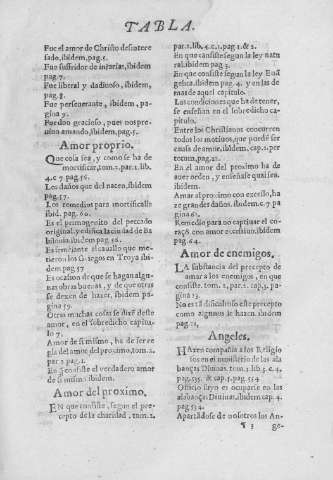 TABLA.
Fue el amor de Christo desintere
sado, ibidem, pag.5.
Fue sufridor de injurias, ibidem
pag 7.
Fue liberal y dadiuoso, ibidem,
pag.8.
Fue perseuerante, ibidem, pa-
gina 9.
Fue don gracioso, pues nos pre-
uino amando, ibidem, pag.5.
Amor proprio.
Que cosa sea, y como se ha de
mortificar, tom.2. par.1. lib.
4. c 7. pag.56.
Los daños que del nacen, ibidem
pag.57.
Los remedios para mortificarle
ibid. pag. 60.
Es el primogenito del peccado
original, y edifica la ciudad de Ba
bilonia, ibidem pag.56.
Es semejante al cauallo que me-
tieron los Griegos en Troya ibi-
dem pag 57
Es ocasion de que se hagan algu-
nas obras buenas, y de que otras
se dexen de hazer, ibidem, pa-
gina 59.
Otras muchas cosas se dizē deste
amor, en el sobredicho capitu-
lo 7.
Amor de si mismo, ha de ser re
gla del amor del proximo, tom.2.
par 2. cap 5.
En q̄ consiste el verdadero amor
de si mismo. ibidem.
Amor del proximo.
EN que consiste, segun el pre-
cepto de la charidad, tom.2.
par.1. lib.4. c.1. pag 1. & 2.
En que consiste segun la ley natu
ral. ibidem pag 3.
En que consiste segun la ley Euā
gelica. ibidem pag 4. y en las de
mas de aquel capitulo.
Las condiciones que ha de tener,
se enseñan en el sobredicho ca-
pitulo.
Entre los Christianos concurren
todos los motiuos, que puedē ser
causa de amor, ibidem, cap.2. per
totum, pag 21.
En el amor del proximo ha de
auer orden, y enseñase qual sea.
ibidem.
Amar al proximo con excesso, ha
ze grandes daños, ibidem. c.7. pa
gina 62.
Remedio para no captiuar el co-
raçō con amor excessiuo, ibidem
pag.64.
Amor de enemigos.
LA substancia del precepto de
amar a los enemigos, en que
consiste. tom. 2, par 2. cap.3. pa-
gina 13.
No es tā dificultoso este precepto
como algunos le hazen. ibidem
pag 21,
Angeles.
HAzen compañia a los Religio
sos en el ministerio de las ala
banças Diuinas. tom. 1 lib 5. c. 4.
pag.535. & cap.3. pag 534
Officio suyo es ocuparse en las
alabanças Diuinas, ibidem, cap.4
pag 534.
Apartādose de nosotros los An-
¶ 3 ge-